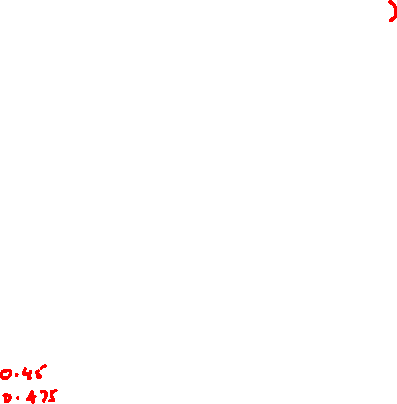 )
0.45
0.475